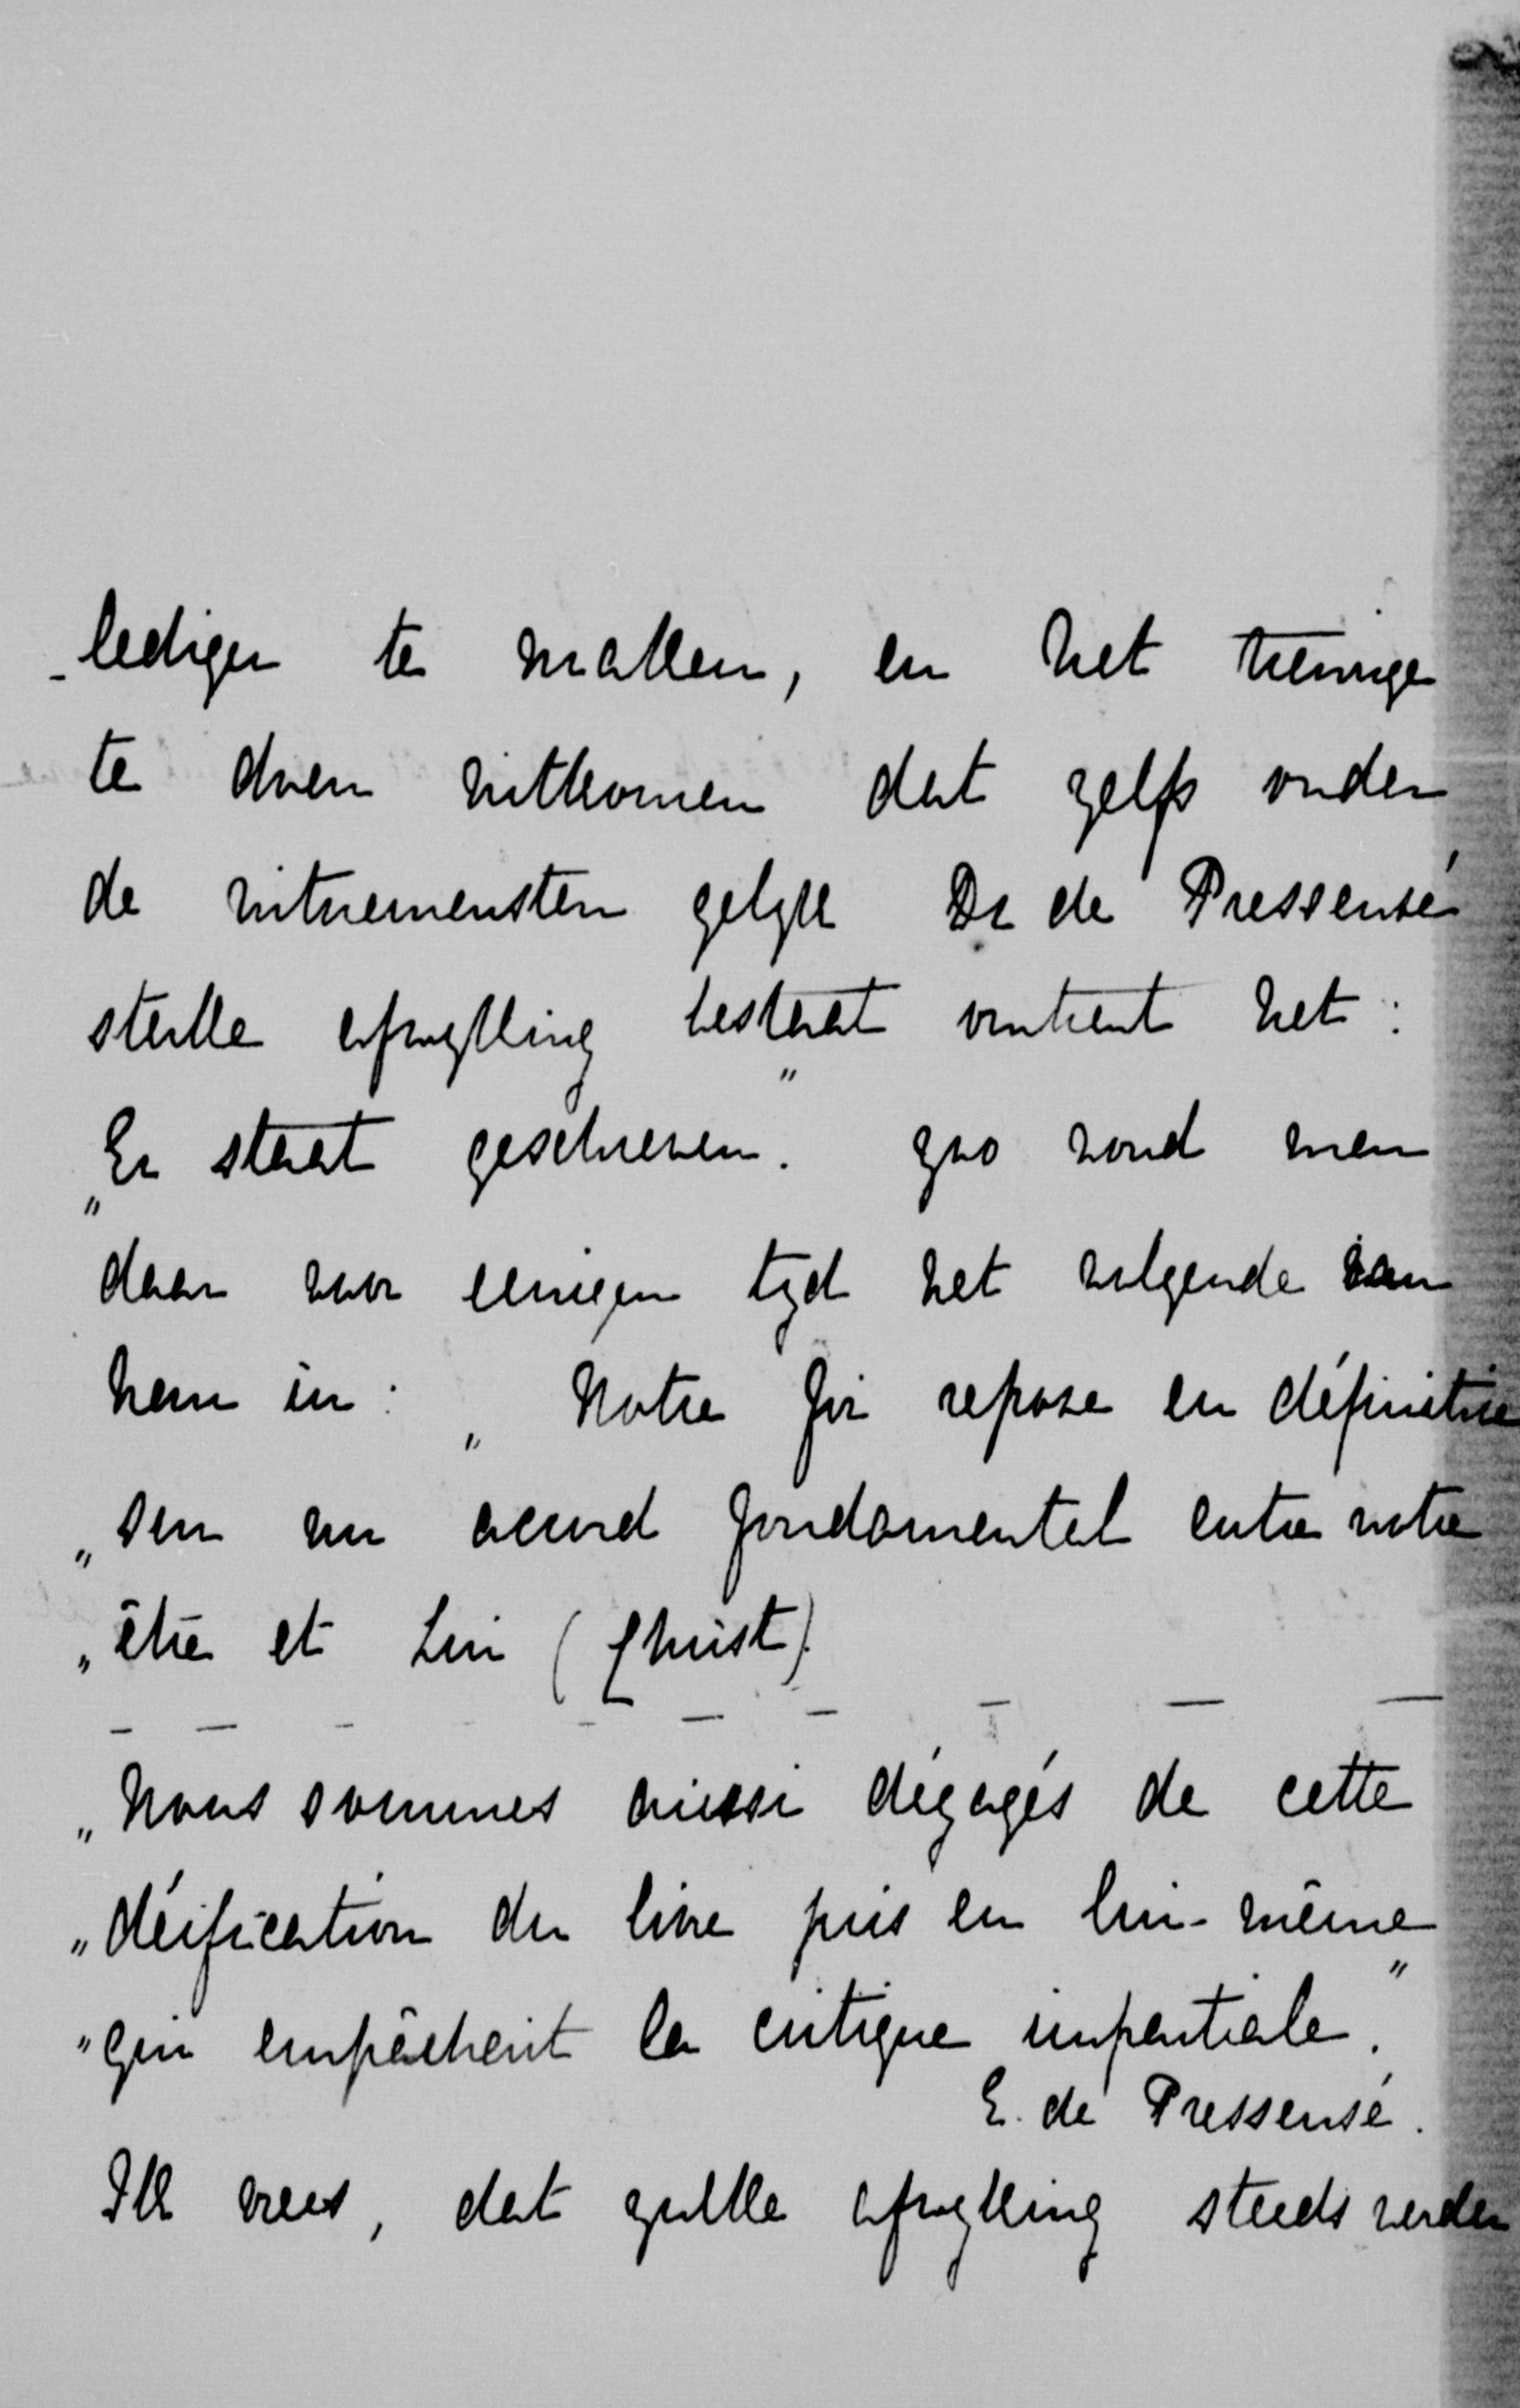 -ledigen te maken, en het treurige
te doen uitkomen dat zelfs onder
de uitnemensten gelyk Dr de Pressensé
sterke afwyking bestaat omtrent het:
„Er staat geschreven." Zoo zond men
daar voor eenigen tyd het volgende van
hem in: „Notre foi repose en définitive
„sur un accord fondamental entre notre
„être et Lui (Christ)
_ _ _ _ _ _ _ _ _
„Nous sommes aussi dégagés de cette
„déification du livre pris en lui-même
"qui empêchait la critique impartiale."
E. de Pressensé.
Ik vrees, dat zulke afwyking steeds verder